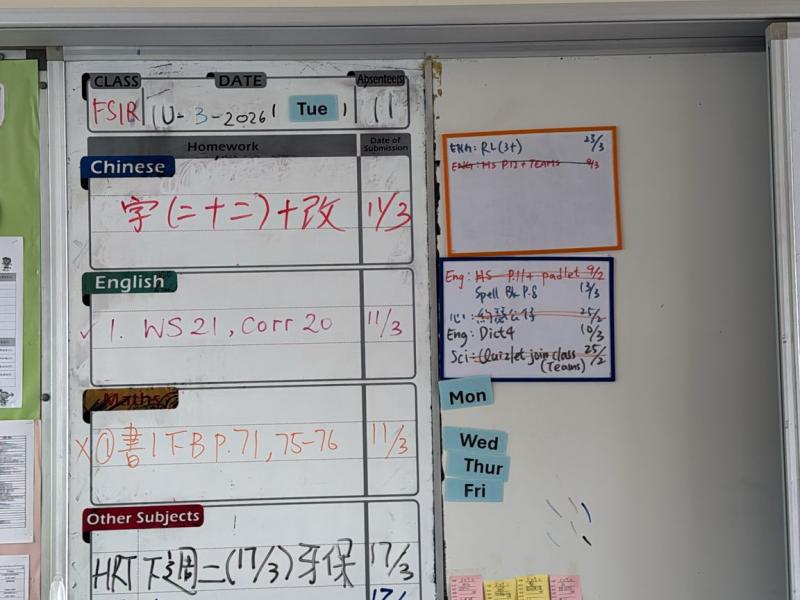 CLASS DATE Absentee(s)
FSIR 10-3-2026 ( Tue ) 11
Homework Date of Submission
Chinese
字(二十二)+改 11/3
English
✓ 1. WS 21, Corr 20 11/3
Maths
X ① 書1下B P.71, 75-76 11/3
Other Subjects
HRT 下週二(17/3) 牙保 17/3
RL(3+) 23/3
ENG: WS P.12 + TEAMS 9/3
Eng: WS P.11 + padlet 9/2
Spell Bk P.8 13/3
25/2
Eng: Dict 4 10/3
Sci: Quizlet join class 25/2
(Teams)
Mon
Wed
Thur
Fri